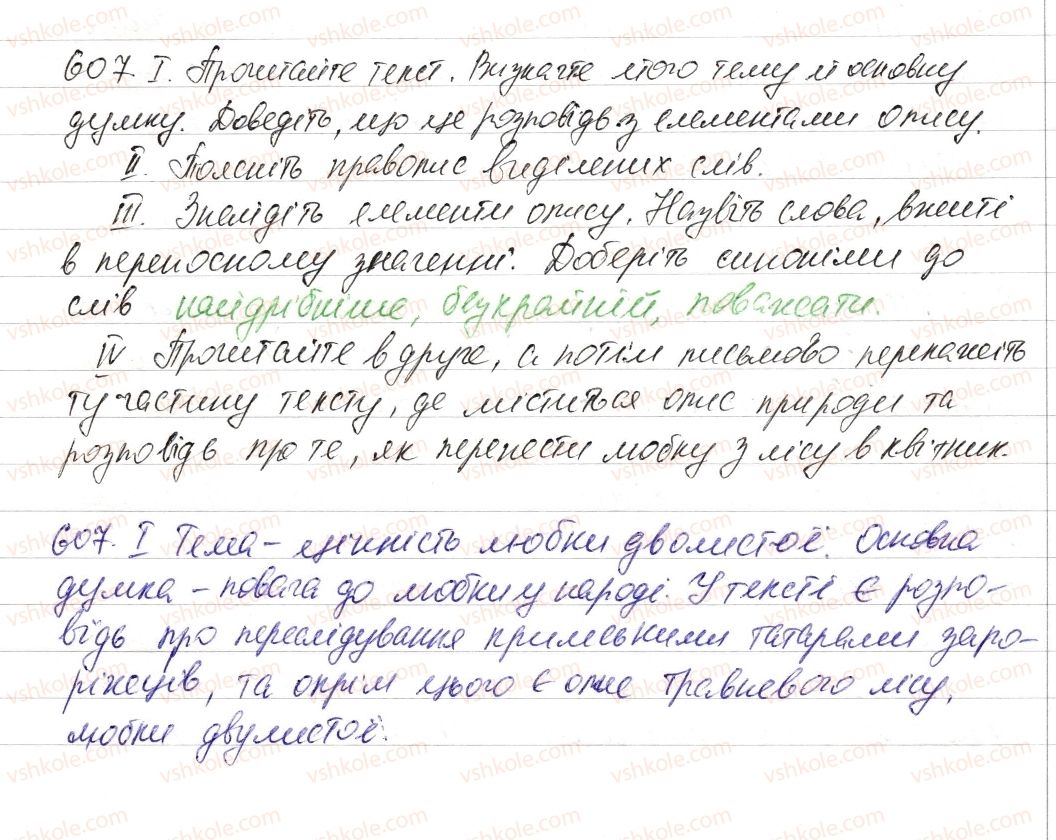 607. І. Прочитайте текст. Визначте його тему й основну
думку. Доведіть, що це розповідь з елементами опису.
ІІ. Поясніть правопис виділених слів.
ІІІ. Знайдіть елементи опису. Назвіть слова, вжиті
в переносному значенні. Доберіть синоніми до
слів найдрібніше, безкрайній, поважати.
ІV Прочитайте вдруге, а потім письмово перекажіть
ту частину тексту, де міститься опис природи та
розповідь про те, як перенести любку з лісу в квітник.
607. І Тема – цінність любки дволистої. Основна
думка – повага до любки у народі. У тексті є розпо-
відь про переслідування кримськими татарами запо-
ріжців, та окрім цього є опис травневого лісу,
любки двулистої.